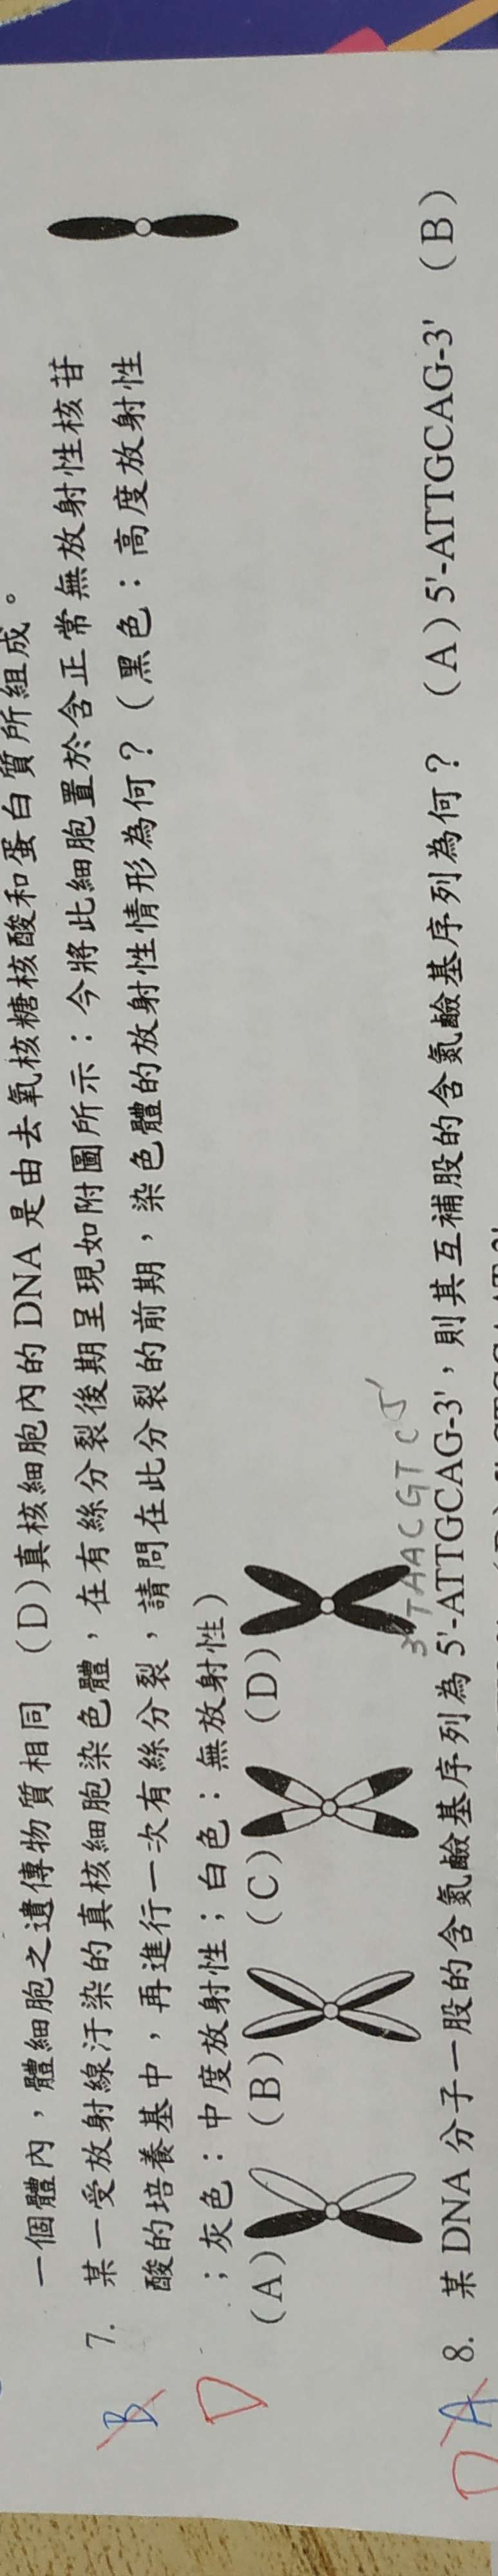 一個體內，體細胞之遺傳物質相同　(D)真核細胞內的 DNA 是由去氧核糖核酸和蛋白質所組成。
B
7. 某一受放射線汙染的真核細胞染色體，在有絲分裂後期呈現如附圖所示：今將此細胞置於含正常無放射性核苷
酸的培養基中，再進行一次有絲分裂，請問在此分裂的前期，染色體的放射性情形為何？（黑色：高度放射性
D
；灰色：中度放射性；白色：無放射性）
(A) (B) (C) (D)
3' TAACGTC 5'
D A
8. 某 DNA 分子一股的含氮鹼基序列為 5'-ATTGCAG-3'，則其互補股的含氮鹼基序列為何？　(A) 5'-ATTGCAG-3'　(B)